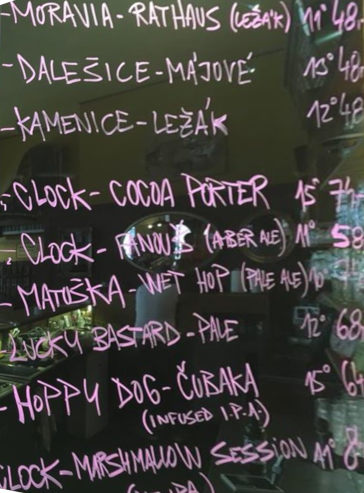 -MORAVIA-RATHAUS (LEŽÁK) 11° 48.
-DALEŠICE-MÁJOVÉ 13° 48.
-KAMENICE-LEŽÁK 12° 48
-CLOCK-COCOA PORTER 15°
CLOCK- (ABER ALE) 11° 58
-MATUŠKA-WET HOP (PALE ALE)
LUCKY BASTARD-PALE 12° 68
-HOPPY DOG-ČUBAKA 15°
(INFUSED I.P.A.)
CLOCK-MARSHMALLOW SESSION 8